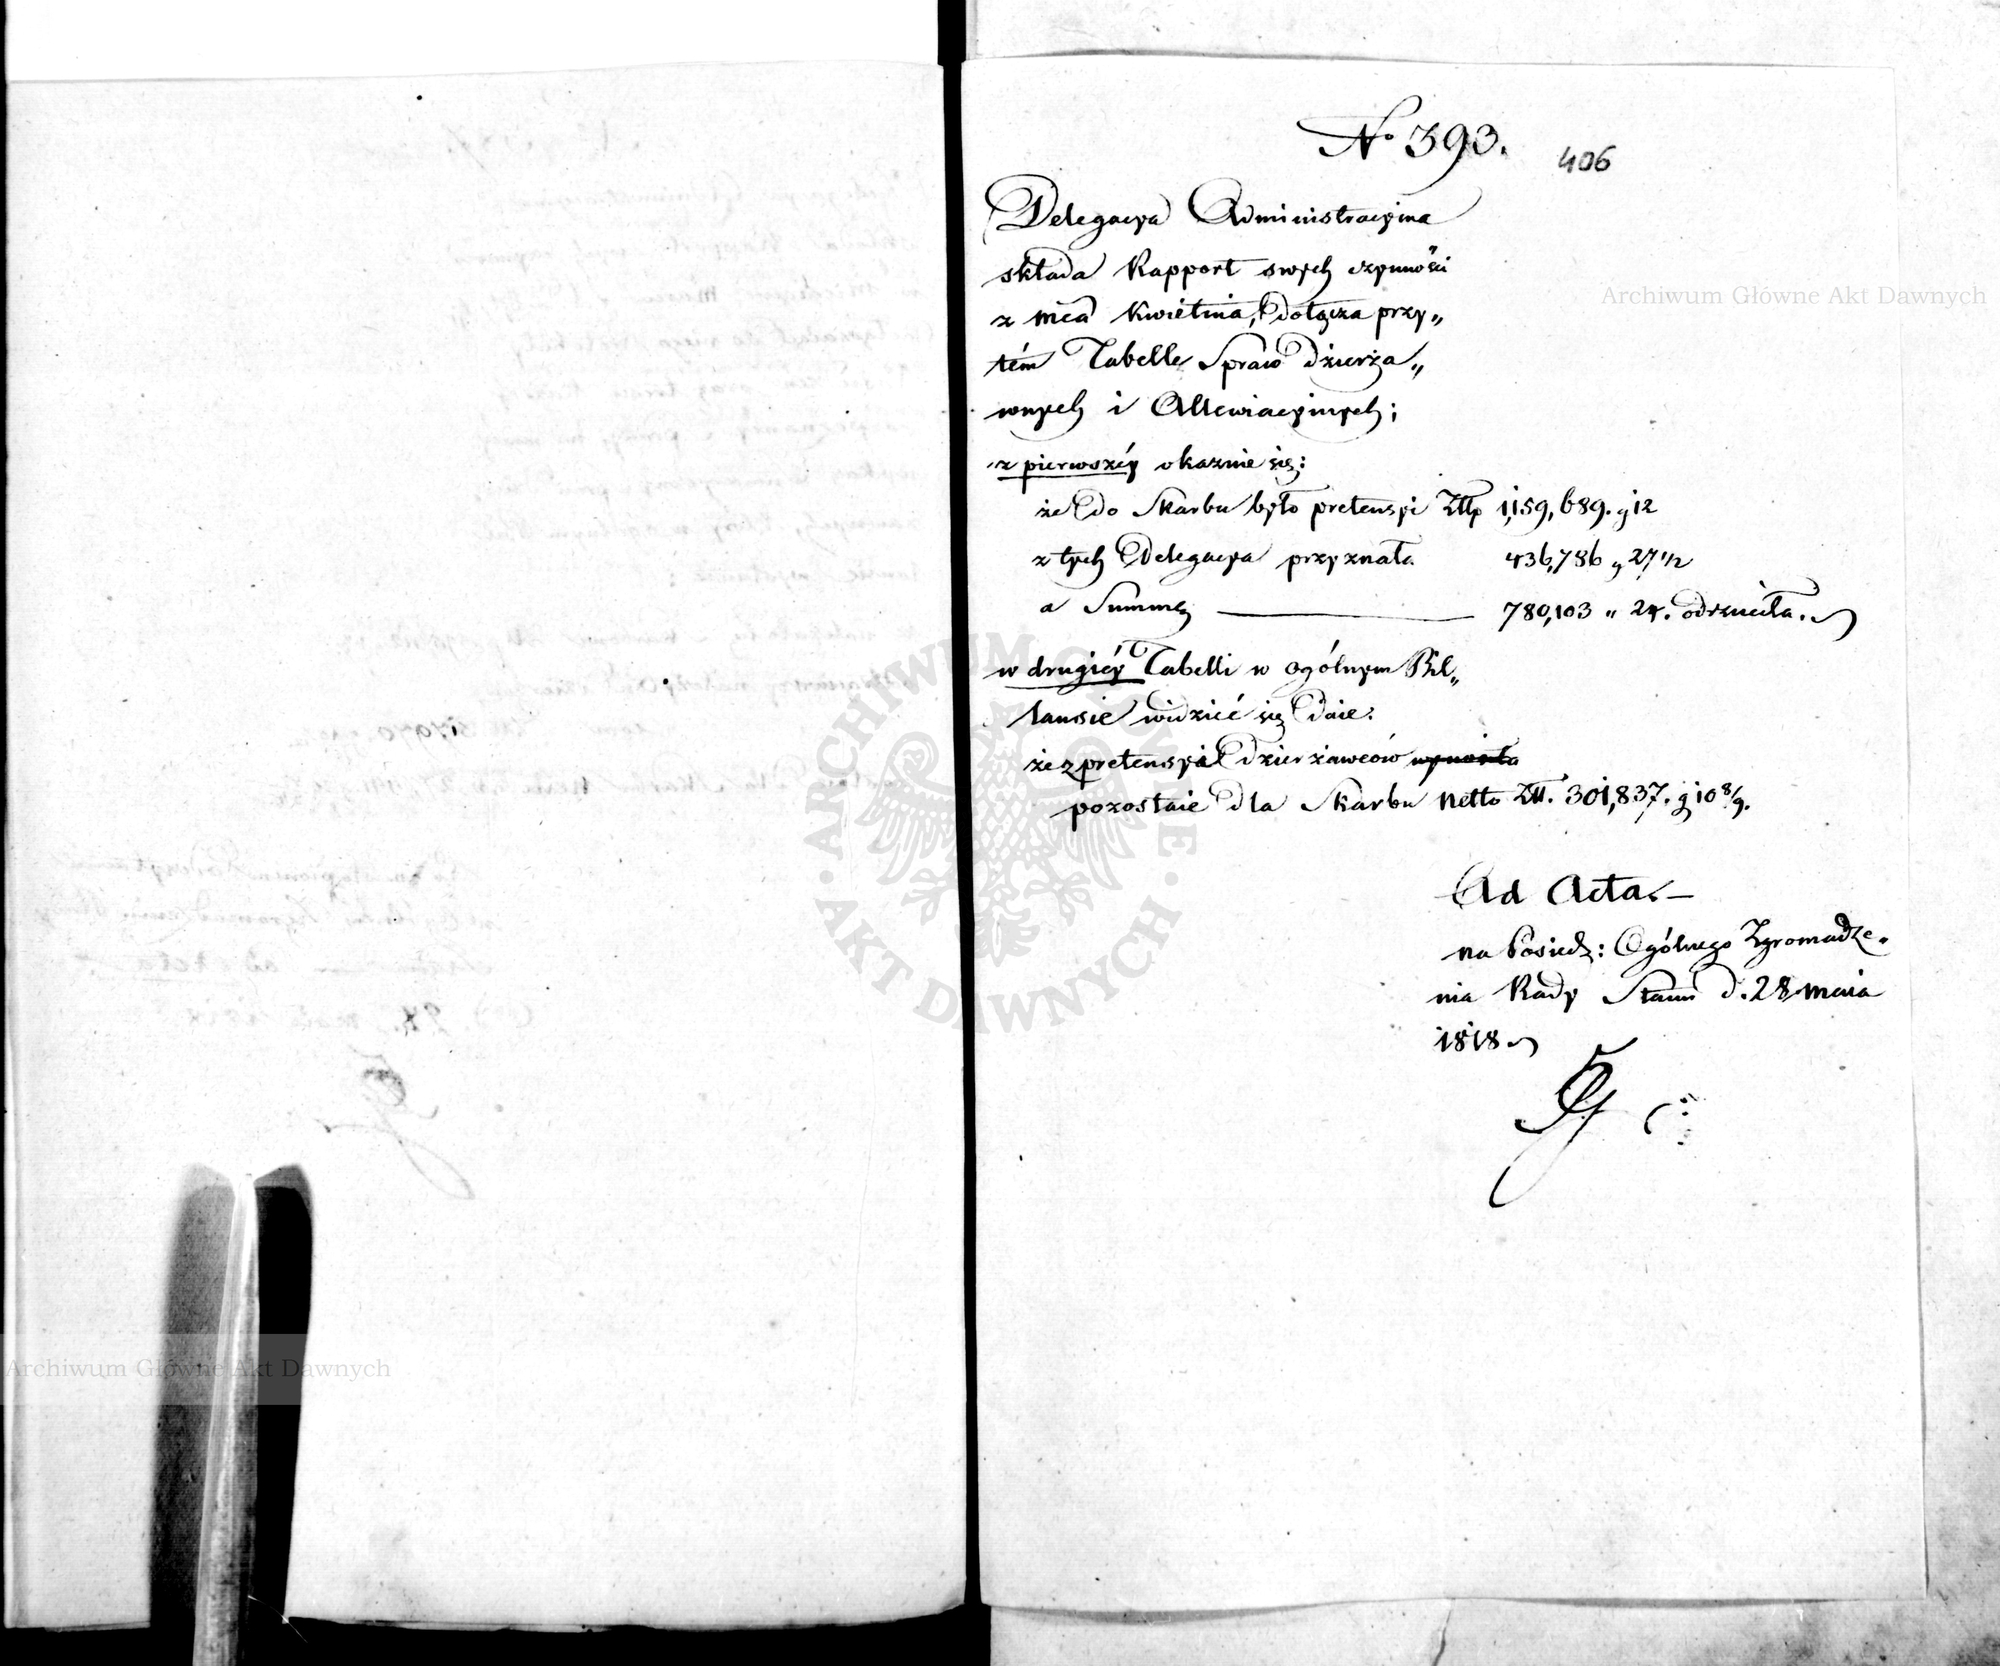 No 393.
406
Delegacya Administracyina
składa Rapport swych czynności
z mca Kwietnia, dołącza przy„
tém Tabelle Spraw dzierża„
wnych i Allewiacyinych;
z pierwszéy okazuie się:
że do Skarbu było pretensyi Złłp 1,159,689. g 12
z tych Delegacya przyznała 436,786 g 27 1/2
a Summę 780,103 „ 24. odrzuciła.
w drugiéy Tabelli w ogólnym Bil„
lansie widzieć się daie:
że z pretensyi dzierżawców wynosła
pozostaie dla Skarbu netto Złł. 301,837. g 10 8/9.
Ad Acta.—
na Posiedz: Ogólnego Zgromadze„
nia Rady Stanu d. 28 maia
1818
Archiwum Główne Akt Dawnych
Archiwum Główne Akt Dawnych
ARCHIWUM GŁÓWNE · AKT DAWNYCH ·